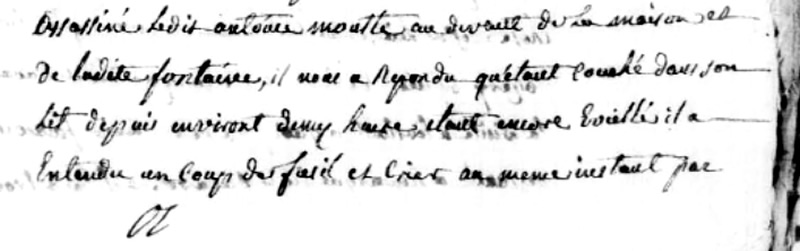 assassiné ledit antoine moutte au devant de sa maison et
de ladite fontaine, il nous a Repondu qu'étant Couché dans son
Lit depuis environt demy heure etant encore Eveillé il a
Entendu un Coup de fusil et Crier au meme instant par